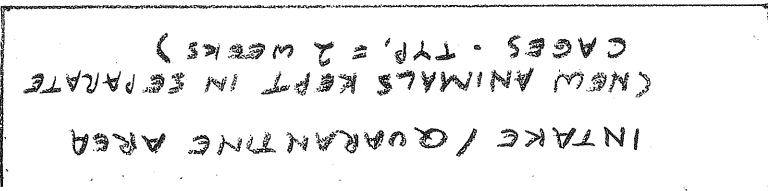 INTAKE / QUARANTINE AREA
(NEW ANIMALS KEPT IN SEPARATE
CAGES - TYP. = 2 WEEKS)